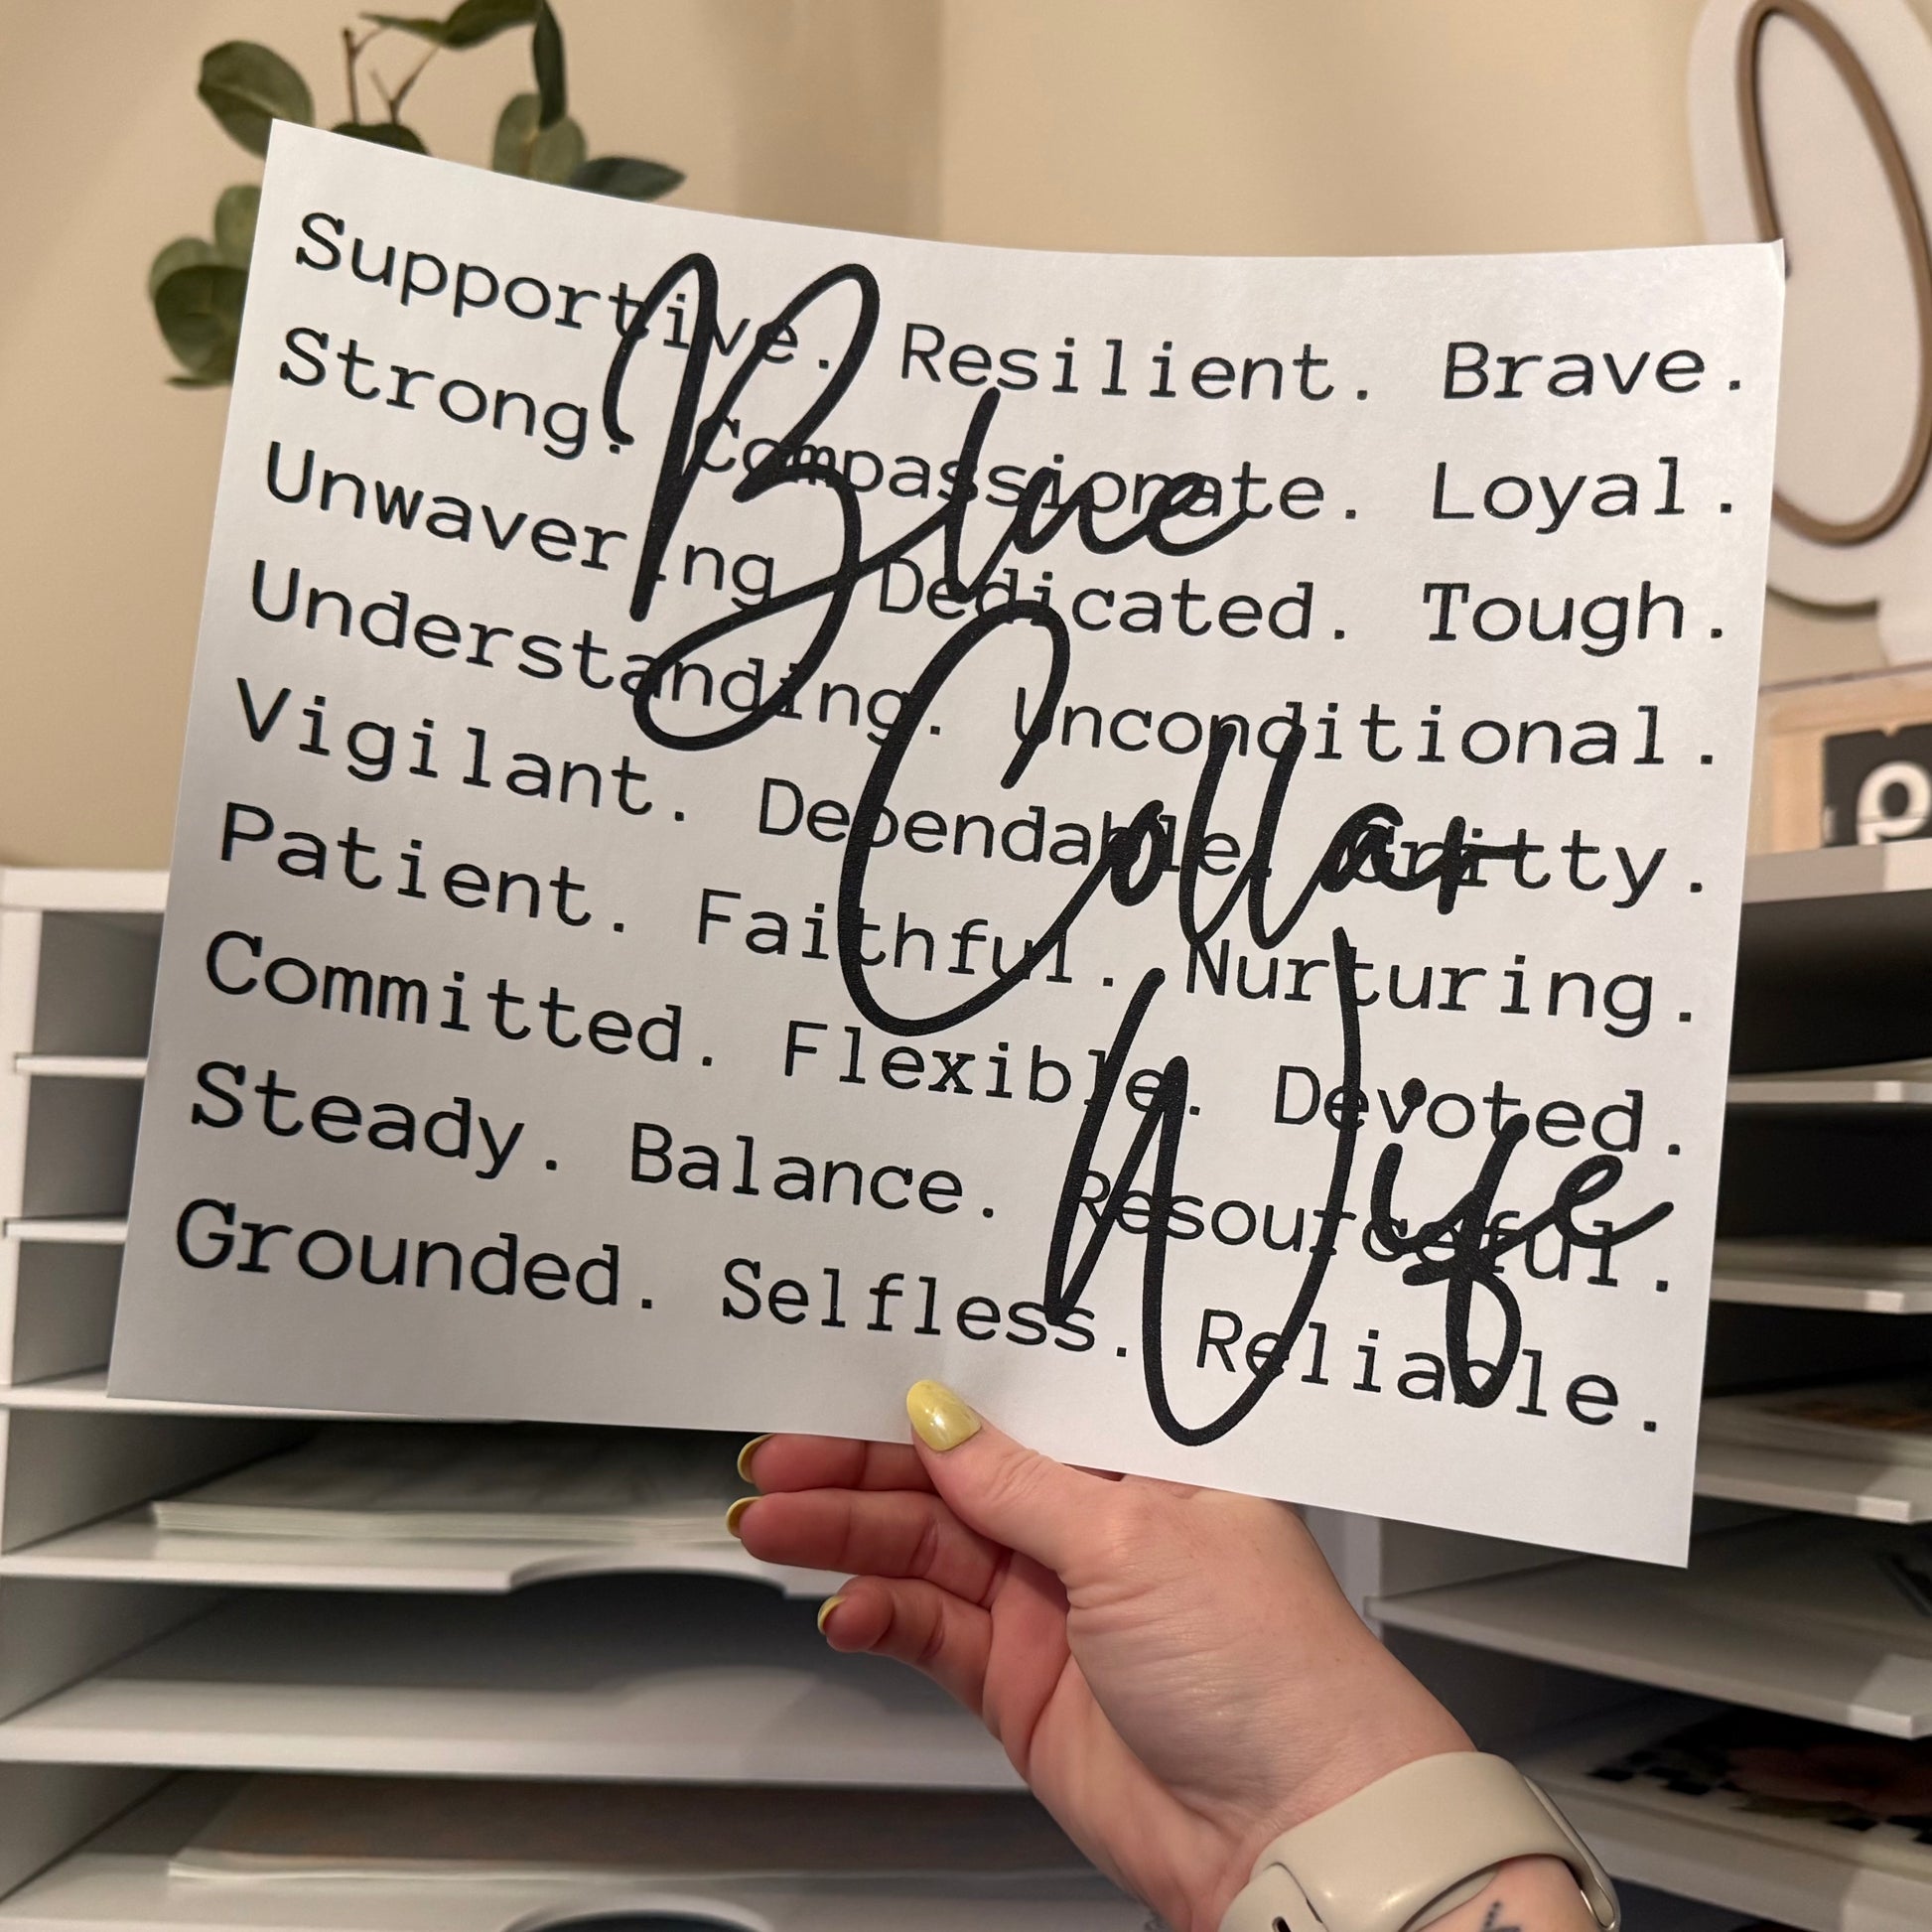 Supportive. Resilient. Brave.
Strong. Compassionate. Loyal.
Unwavering. Dedicated. Tough.
Understanding. Unconditional.
Vigilant. Dependable. Gritty.
Patient. Faithful. Nurturing.
Committed. Flexible. Devoted.
Steady. Balance. Resourceful.
Grounded. Selfless. Reliable.
Blue
Collar
Wife